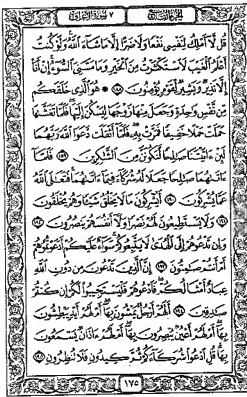 الجزء التاسع
سورة الأعراف ٧
قُل لَّآ أَمْلِكُ لِنَفْسِي نَفْعًا وَلَا ضَرًّا إِلَّا مَا شَآءَ ٱللَّهُ وَلَوْ كُنتُ
أَعْلَمُ ٱلْغَيْبَ لَٱسْتَكْثَرْتُ مِنَ ٱلْخَيْرِ وَمَا مَسَّنِيَ ٱلسُّوٓءُ إِنْ أَنَا۠
إِلَّا نَذِيرٌ وَبَشِيرٌ لِّقَوْمٍ يُؤْمِنُونَ ١٨٨ ۞ هُوَ ٱلَّذِي خَلَقَكُم
مِّن نَّفْسٍ وَٰحِدَةٍ وَجَعَلَ مِنْهَا زَوْجَهَا لِيَسْكُنَ إِلَيْهَا فَلَمَّا تَغَشَّىٰهَا
حَمَلَتْ حَمْلًا خَفِيفًا فَمَرَّتْ بِهِۦ فَلَمَّآ أَثْقَلَت دَّعَوَا ٱللَّهَ رَبَّهُمَا
لَئِنْ ءَاتَيْتَنَا صَٰلِحًا لَّنَكُونَنَّ مِنَ ٱلشَّٰكِرِينَ ١٨٩ فَلَمَّآ
ءَاتَىٰهُمَا صَٰلِحًا جَعَلَا لَهُۥ شُرَكَآءَ فِيمَآ ءَاتَىٰهُمَا فَتَعَٰلَى ٱللَّهُ
عَمَّا يُشْرِكُونَ ١٩٠ أَيُشْرِكُونَ مَا لَا يَخْلُقُ شَيْـًٔا وَهُمْ يُخْلَقُونَ
١٩١ وَلَا يَسْتَطِيعُونَ لَهُمْ نَصْرًا وَلَآ أَنفُسَهُمْ يَنصُرُونَ ١٩٢
وَإِن تَدْعُوهُمْ إِلَى ٱلْهُدَىٰ لَا يَتَّبِعُوكُمْ سَوَآءٌ عَلَيْكُمْ أَدَعَوْتُمُوهُمْ
أَمْ أَنتُمْ صَٰمِتُونَ ١٩٣ إِنَّ ٱلَّذِينَ تَدْعُونَ مِن دُونِ ٱللَّهِ
عِبَادٌ أَمْثَالُكُمْ فَٱدْعُوهُمْ فَلْيَسْتَجِيبُوا۟ لَكُمْ إِن كُنتُمْ
صَٰدِقِينَ ١٩٤ أَلَهُمْ أَرْجُلٌ يَمْشُونَ بِهَآ أَمْ لَهُمْ أَيْدٍ يَبْطِشُونَ
بِهَآ أَمْ لَهُمْ أَعْيُنٌ يُبْصِرُونَ بِهَآ أَمْ لَهُمْ ءَاذَانٌ يَسْمَعُونَ
بِهَا قُلِ ٱدْعُوا۟ شُرَكَآءَكُمْ ثُمَّ كِيدُونِ فَلَا تُنظِرُونِ ١٩٥
١٧٥